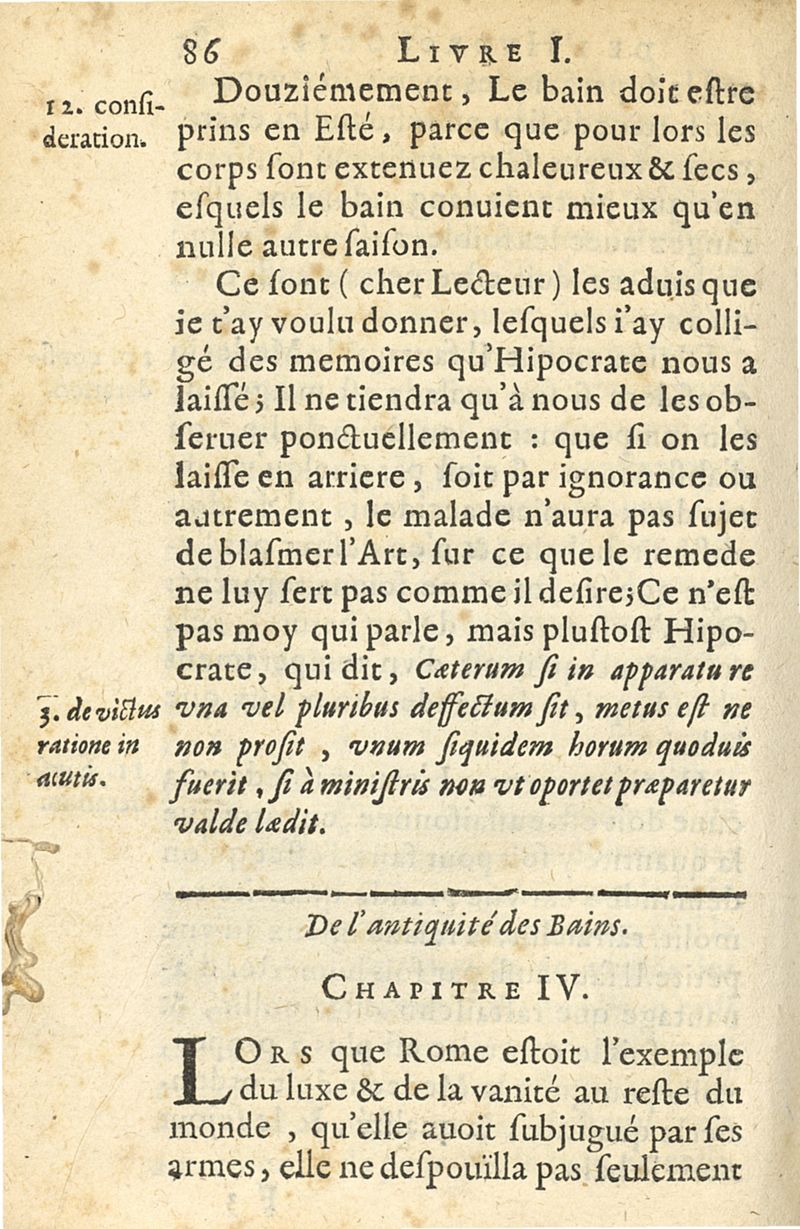 86 LIVRE I.
12. conſi-
deration.
Douziémement, Le bain doit eſtre
prins en Eſté, parce que pour lors les
corps ſont extenuez chaleureux & ſecs,
eſquels le bain conuient mieux qu'en
nulle autre ſaiſon.
Ce ſont (cher Lecteur) les aduis que
ie t'ay voulu donner, leſquels i'ay colli-
gé des memoires qu'Hipocrate nous a
laiſſé; Il ne tiendra qu'à nous de les ob-
ſeruer ponctuellement : que ſi on les
laiſſe en arriere, ſoit par ignorance ou
autrement, le malade n'aura pas ſujet
de blaſmer l'Art, ſur ce que le remede
ne luy ſert pas comme il deſire; Ce n'eſt
pas moy qui parle, mais pluſtoſt Hipo-
crate, qui dit, Cæterum ſi in apparatu re
3. de victus
ratione in
acutis.
vna vel pluribus deffectum ſit, metus eſt ne
non proſit, vnum ſiquidem horum quoduis
fuerit, ſi à miniſtris non vt oportet præparetur
valde lædit.
De l'antiquité des Bains.
CHAPITRE IV.
LORS que Rome eſtoit l'exemple
du luxe & de la vanité au reſte du
monde, qu'elle auoit ſubjugué par ſes
armes, elle ne deſpoüilla pas ſeulement